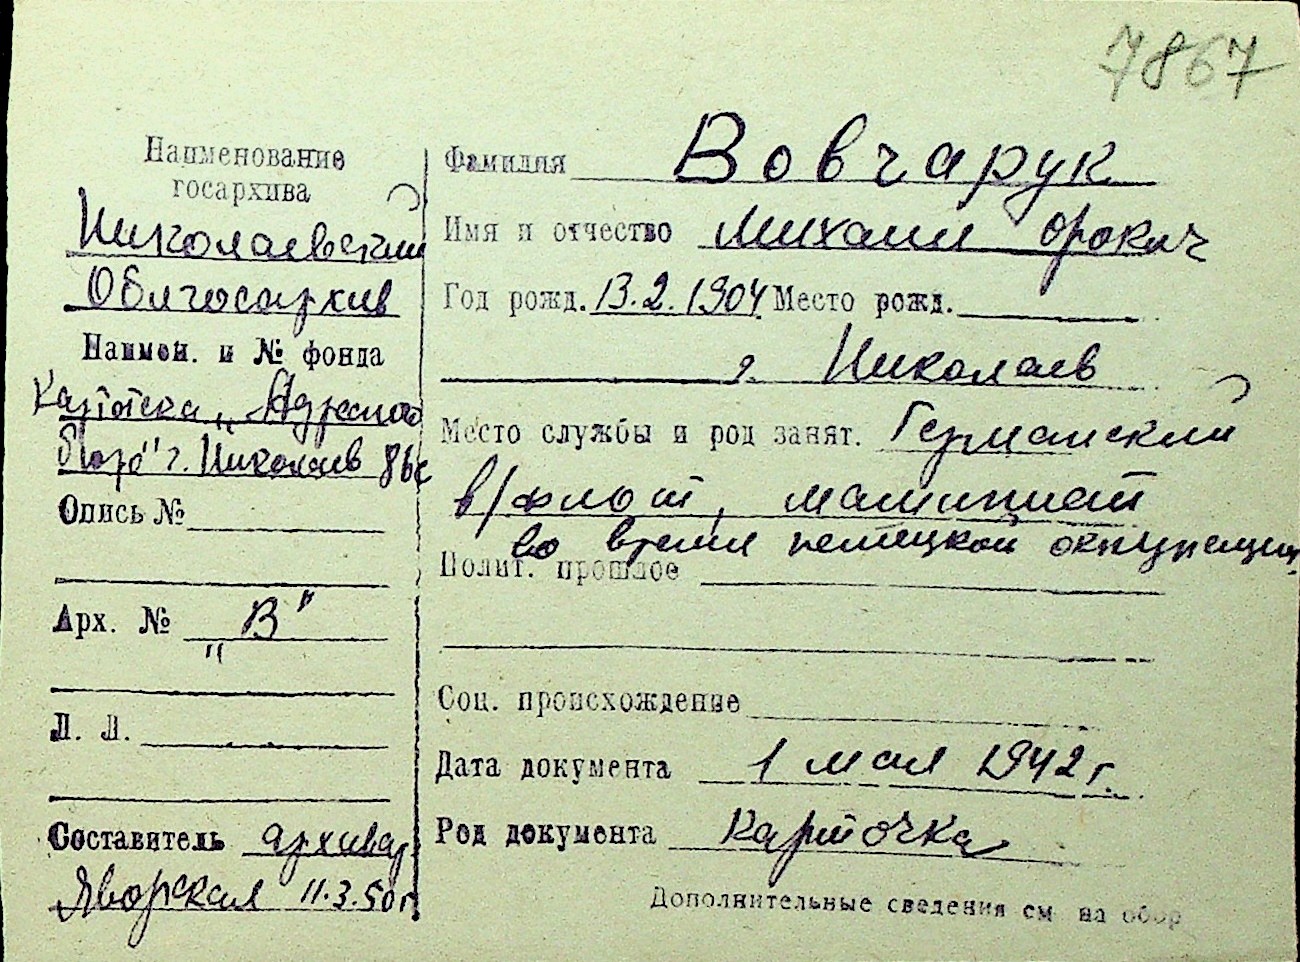 7867
Наименование
госархива
Николаевский
Облгосархив
Наимен. и № фонда
Картотека „Адресного
бюро" г. Николаев
Опись №
Арх. № „В"
Л. Л.
Составитель архивар
Яворская 11.3.50 г.
Фамилия Вовчарук
Имя и отчество Михаил
Год рожд. 13.2.1904 Место рожд.
г. Николаев
Место службы и род занят. Германский
в/флот, машинист
во время немецкой оккупации
Полит. прошлое
Соц. происхождение
Дата документа 1 мая 1942 г.
Род документа Карточка
Дополнительные сведения см на обор